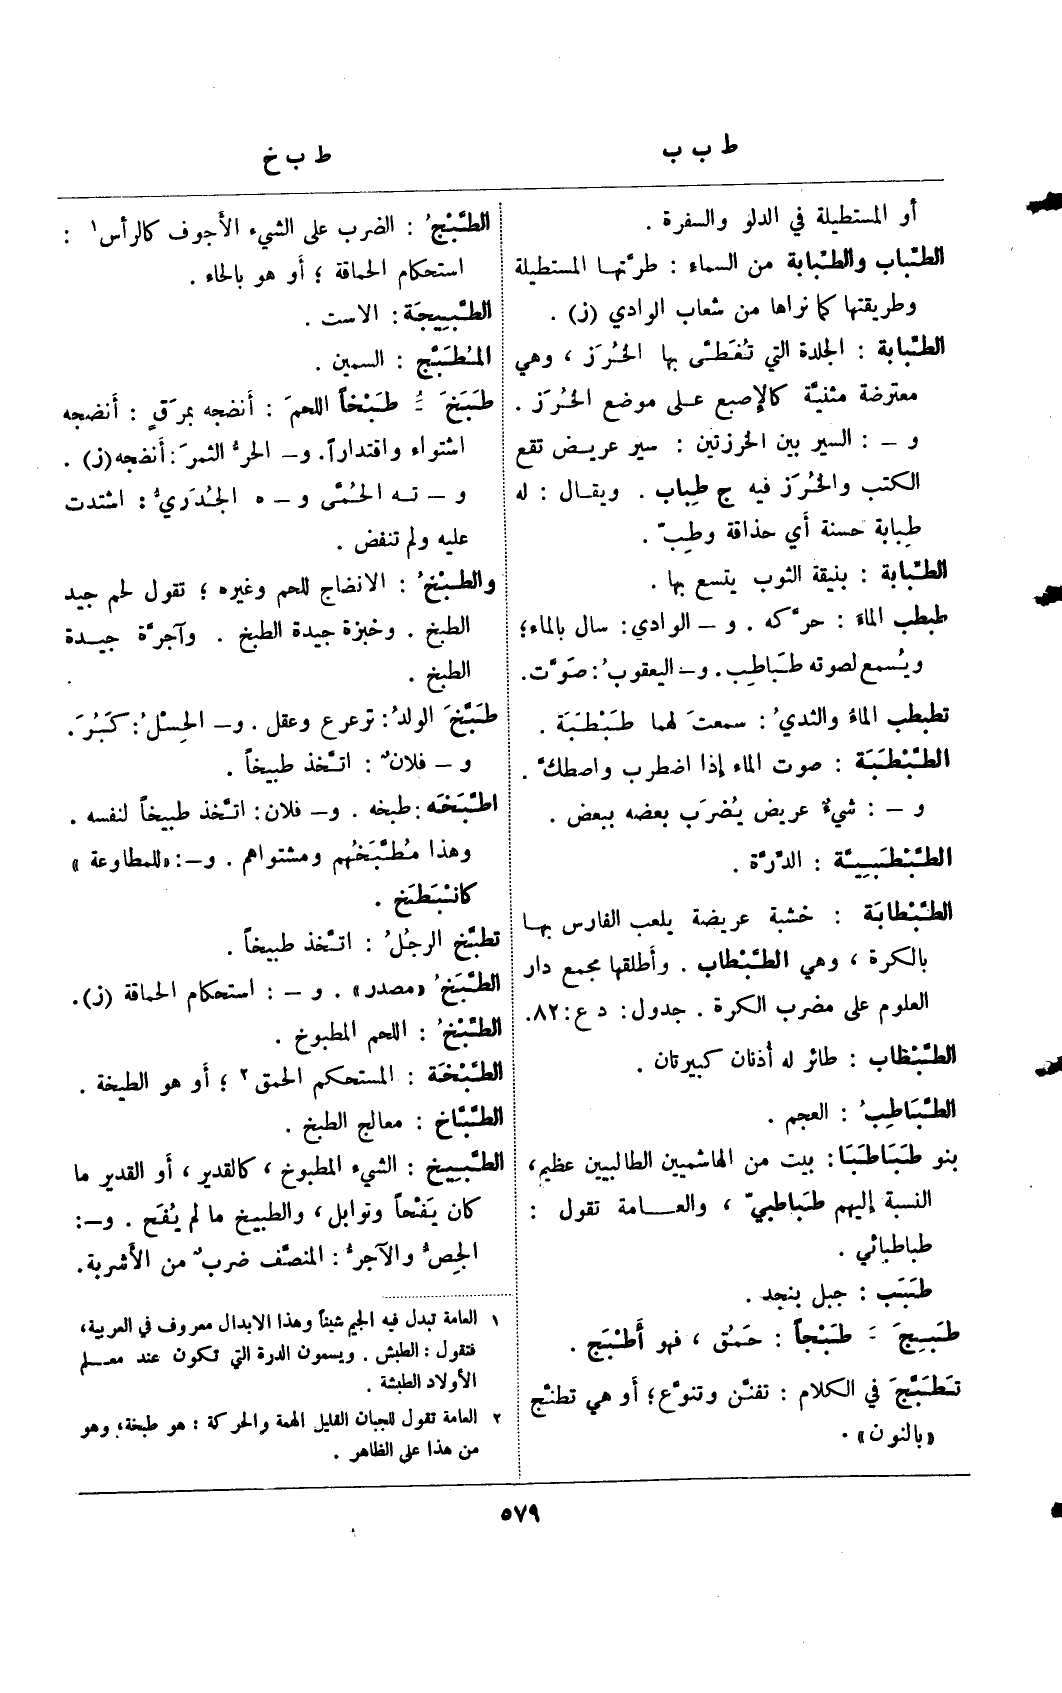 ط ب ب
ط ب خ
أو المستطيلة في الدلو والسفرة .
الطِّباب والطِّبابة من السماء : طرّتهـا المستطيلة
وطريقتها كما نراها من شعاب الوادي (ز) .
الطِّبابة : الجلدة التي تُغَطّى بها الخُرَز ، وهي
معترضة مثنيَّة كالإصبع عـلى موضع الخُرَز .
و – : السير بين الخرزتين : سير عريـض تقع
الكتب والخُرَز فيه ج طِباب . ويقـال : له
طِبابة حسنة أي حذاقة وطِبّ .
الطِّبابة : بنيقة الثوب يتسع بها .
طبطب الماءَ : حرَّكه . و – الوادي: سال بالماء؛
ويُسمع لصوته طَبَاطِب. و– اليعقوبُ: صَوَّت.
تطبطب الماءُ والثديُ: سمعتَ لهما طَبْطَبَة .
الطَّبْطَبَة : صوت الماء إذا اضطرب واصطكَّ .
و – : شيءٌ عريض يُضرَب بعضه ببعض .
الطَّبْطَبِيَّة : الدِّرَّة .
الطَّبْطابَة : خشبة عريضة يلعب الفارس بهـا
بالكرة ، وهي الطَّبْطاب . وأطلقها مجمع دار
العلوم على مضرب الكرة . جدول: د ع: ٨٢.
الطَّبْظاب : طائر له أذنان كبيرتان .
الطَّبَاطِبُ : العجم .
بنو طَبَاطَبَا: بيت من الهاشميين الطالبيين عظيم،
النسبة إليهم طَبَاطبيّ ، والعـــامة تقول :
طباطبائي .
طَبَب : جبل بنجد .
طَبِجَ ـَ طَبْجاً : حَمُق ، فهو أَطْبَج .
تَطَبَّجَ في الكلام : تفنَّن وتنوَّع؛ أو هي تطنَّج
«بالنون» .
الطَّبْجُ : الضرب على الشيء الأجوف كالرأس١ :
استحكام الحماقة ؛ أو هو بالحاء .
الطَّبيجَة : الاست .
المُطَبَّج : السمين .
طَبَخَ ـُ طَبْخاً اللحمَ : أنضجه بمرَقٍ : أنضجه
اشتواء واقتداراً. و– الحرُّ الثمرَ: أنضجه (ز) .
و – تـه الحُمّى و – ه الجُدَريُّ : اشتدت
عليه ولم تنفض .
والطبْخُ : الانضاج للحم وغيره ؛ تقول لحم جيد
الطبخ . وخبزة جيدة الطبخ . وآجرَّة جيـدة
الطبخ .
طَبَّخَ الولدُ: ترعرع وعقل . و– الحِسْلُ: كَبُرَ.
و – فلانٌ : اتَّخذ طبيخاً .
اطَّبَخَه : طبخه . و– فلان : اتَّخذ طبيخاً لنفسه .
وهذا مُطَّبَخُهم ومشتواهم . و–: «للمطاوعة»
كانْطَبَخ .
تطبَّخ الرجُلُ : اتَّخذ طبيخاً .
الطَّبَخُ «مصدر» . و – : استحكام الحماقة (ز).
الطِّبْخُ : اللحم المطبوخ .
الطَّبْخَة : المستحكم الحمق ٢ ؛ أو هو الطيخة .
الطَّبَّاخ : معالج الطبخ .
الطَّبِيخ : الشيء المطبوخ ، كالقدير ، أو القدير ما
كان يَفْحاً وتوابل ، والطبيخ ما لم يُفَح . و–:
الجِصُّ والآجرُّ : المنصَّف ضربٌ من الأشربة.
١ العامة تبدل فيه الجيم شيناً وهذا الابدال معروف في العربية،
فتقول : الطبش . ويسمون الدرة التي تكون عند معـلم
الأولاد الطبشة .
٢ العامة تقول للجبان القليل الهمة والحركة : هو طبخة، وهو
من هذا على الظاهر .
٥٧٩